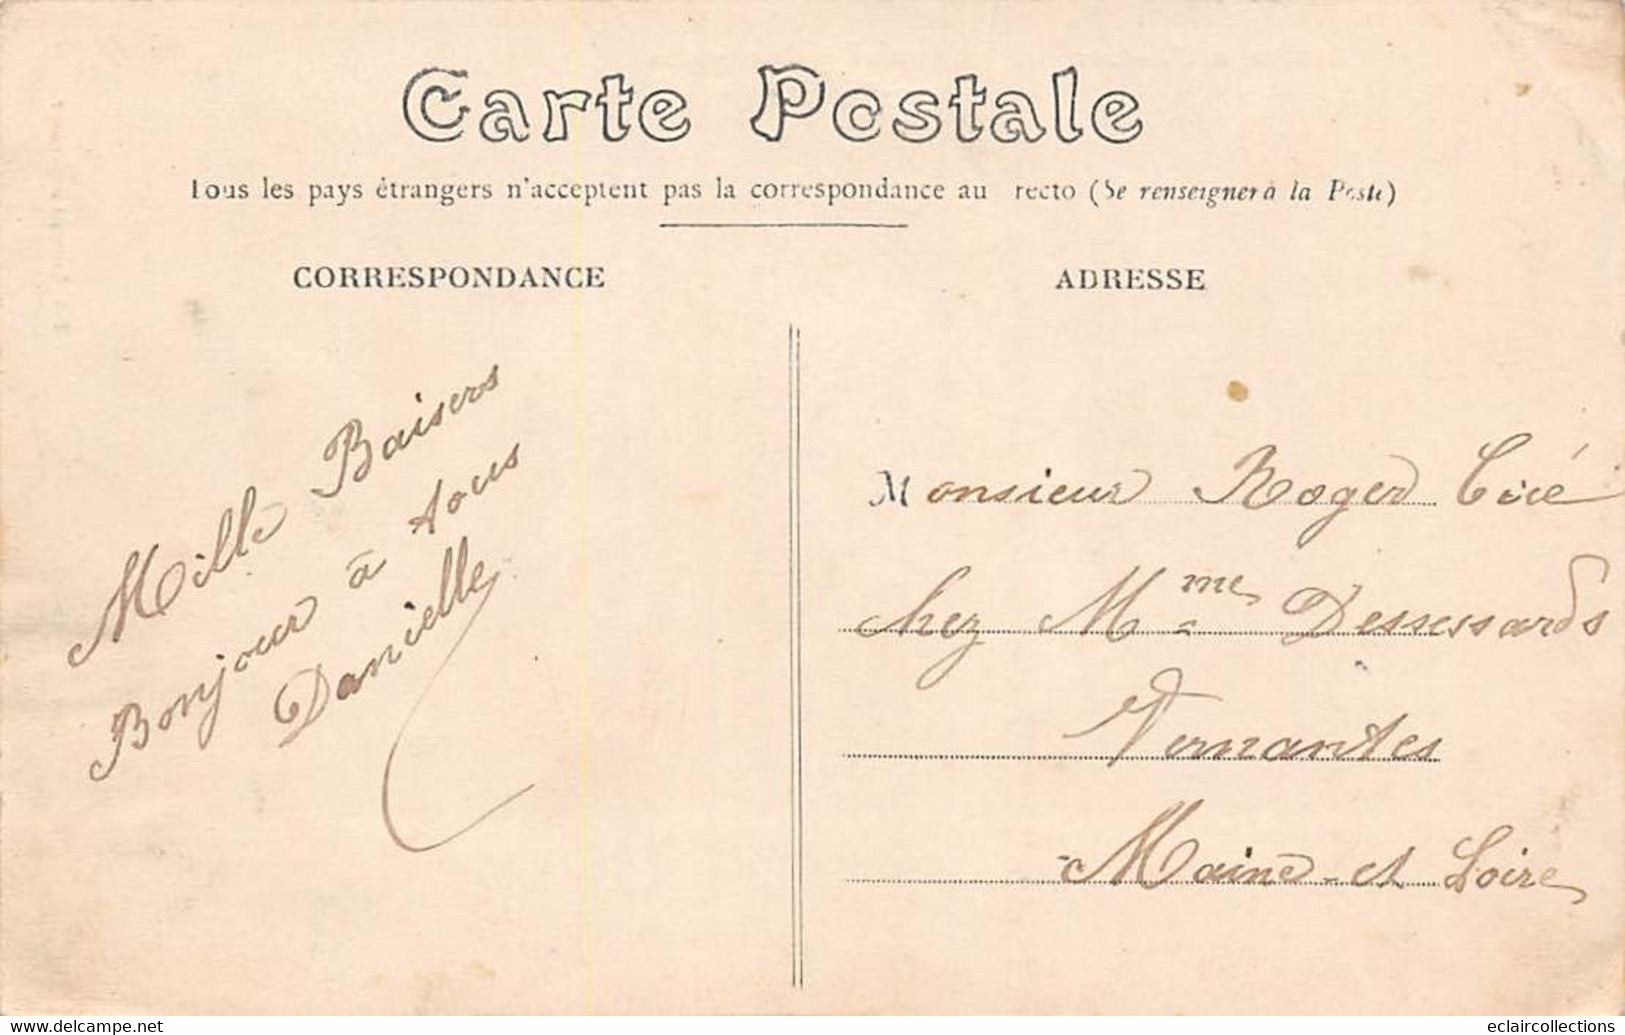 Carte Postale
Tous les pays étrangers n'acceptent pas la correspondance au recto (Se renseigner à la Poste)
CORRESPONDANCE
ADRESSE
Mille Baisers
Bonjour à tous
Danielle
Monsieur Roger
chez Mme Dessessards
Vernantes
Maine-et Loire
www.delcampe.net
eclaircollections